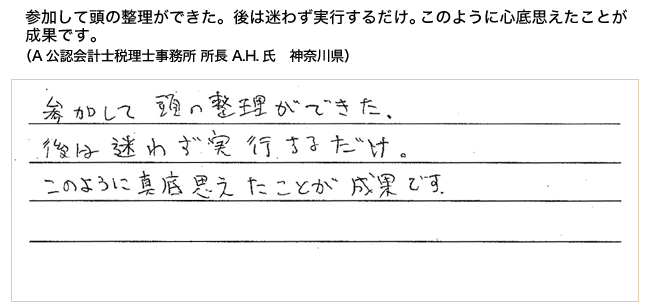 参加して頭の整理ができた。後は迷わず実行するだけ。このように心底思えたことが
成果です。
（A 公認会計士税理士事務所 所長 A.H. 氏　神奈川県）
参加して 頭の整理ができた、
後は迷わず実行するだけ。
このように真底思えたことが成果です.